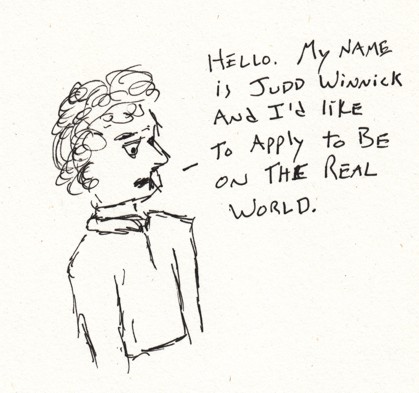 HELLO. My NAME
is JUDD WiNNiCK
ANd I'd liKE
To Apply to BE
ON THE REAL
WORLD.